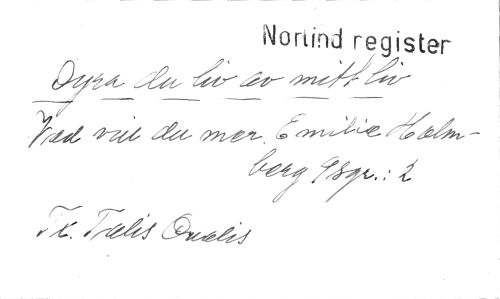 Norlind register
Dyra du liv av mitt liv
Vad vill du mer. Emilie Holm-
berg 9sgr.: 2
Tx. Talis Qualis